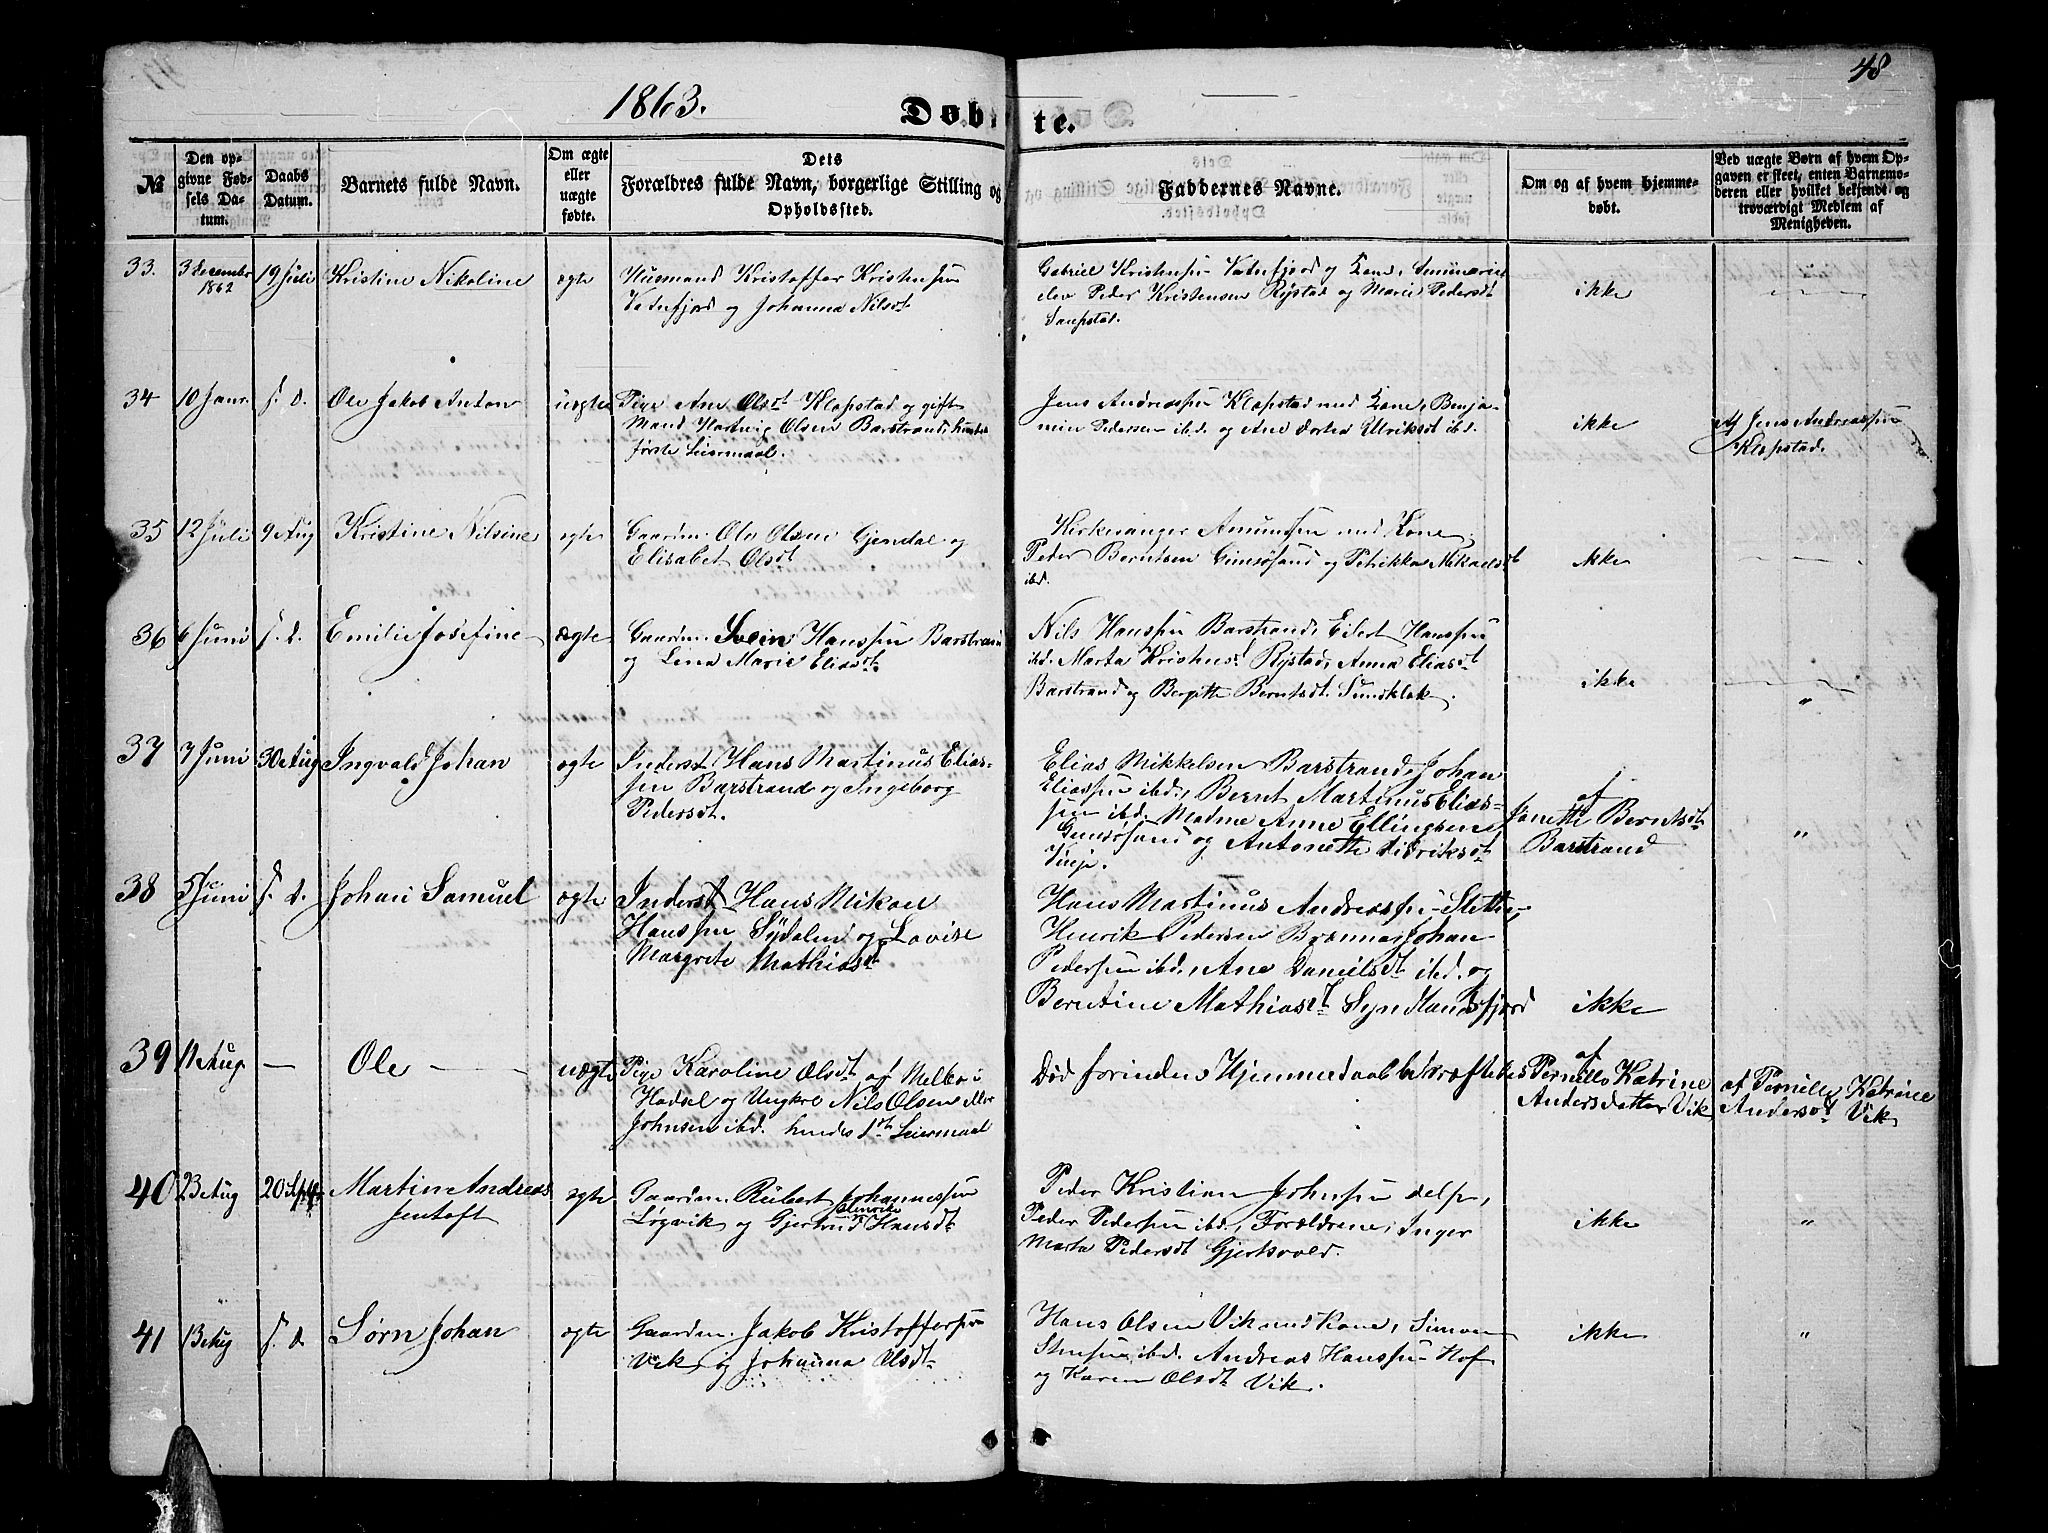 48
1863.
Døbte.
№
Den op-
givne Fød-
sels Da-
tum.
Daabs
Datum.
Barnets fulde Navn.
Om ægte
eller
uægte
fødte.
Dets
Forældres fulde Navn, borgerlige Stilling og
Opholdssted.
Faddernes Navne.
Om og af hvem hjemme-
døbt.
Ved uægte Børn af hvem Op-
gaven er skeet, enten Barnemo-
deren eller hvilket bekjendt og
troværdigt Medlem af
Menigheden.
33. 3 December 19 Juli Kristine Nikoline ægte Husmand Kristoffer Kristensen
1862
Vatnfjord og Johanna Nilsdt
Gabriel Kristensen Vatnfjord og Kone, Seminarie
elev Peder Kristensen Rystad og Marie Pedersdt
Saupstad.
ikke
34 10 Janr. s. d. Ole Jakob Anton uægte Pige Ane Olsdt Klopstad og gift
Mand Hartvig Olsen Barstrand, hendes
første Leiermaal.
Jens Andreassen Klopstad med Kone, Benja-
min Pedersen ibd. og Ane Dortea Ulriksdt ibd.
ikke
af Jens Andreassen
Klopstad.
35 12 Juli 9 Aug Kristine Nilsine ægte Gaardm. Ole Olsen Gjendal og
Elisabet Olsdt
Kirkesanger Amundsen med Kone,
Peder Berntsen Gimsøsand og Petrikke Mikaelsdt
ibd.
ikke
36 6 Juni s. d. Emilie Josefine ægte Gaardm. Svein Hanssen Barstrand
og Lina Marie Eliasdt.
Nils Hanssen Barstrand, Eilert Hanssen
ibd. Marta Kristensdt Rystad, Anna Eliasdt
Barstrand og Bergitte Berntsdt. Sundklak.
ikke "
37 7 Juni 30 Aug Ingvald Johan ægte Inderst Hans Martinus Elias-
sen Barstrand og Ingeborg
Pedersdt.
Elias Mikkelsen Barstrand, Johan
Eliassen ibd., Bernt Martinus Elias-
sen ibd. Madme Anne Ellingsen
Gimsøsand og Antonette Didriksdt
Vinje.
af
Janette Berntsdt
Barstrand
"
38 5 Juni s. d. Johan Samuel ægte Inderst Hans Mikal
Hanssen Sydalen og Lovise
Margrete Mathiasdt
Hans Martinus Andreassen Slette,
Henrik Pedersen Brenna, Johan
Pedersen ibd., Ane Danielsdt ibd. og
Berntine Mathiasdt Syndlandsfjord
ikke
39 11 Aug — Ole — uægte Pige Karoline Olsdt af Melbo i
Hadsel og Ungkrl Nils Olsen eller
Johnsen ibd. hendes 1ste Leiermaal
Død forinden Hjemmedaab bekræftedes
af
Pernille Katrine
Andersdatter Vik
af Pernille Katrine
Andersdt Vik
40 23 Aug 20 Septbr Martin Andreas
Jentoft
ægte Gaardm. Rubert Johannessen
Løgvik og Gjertrud Henrike Hansdt
Peder Kristian Johnsen Delp,
Peder Pedersen ibd., Forældrene, Inger
Marta Pedersdt Gjerksvold.
ikke "
41 13 Aug s. d Sørn Johan ægte Gaardm. Jakob Kristoffersen
Vik og Johanna Olsdt
Hans Olsen Vik med Kone, Simon
Stensen ibd. Andreas Hanssen Hof
og Karen Olsdt Vik.
ikke "